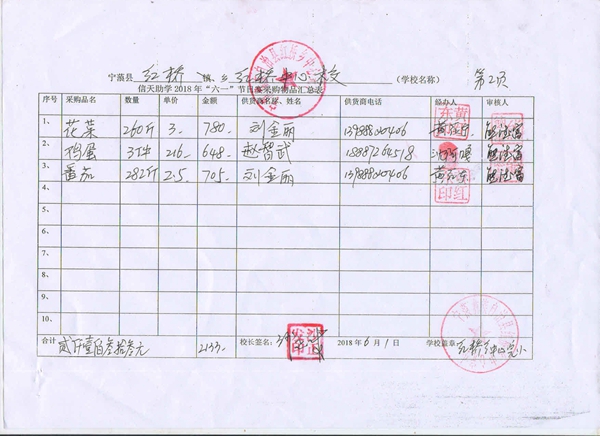 宁蒗县 红桥 镇、乡 红桥中心校 (学校名称) 第2页
信天助学 2018 年“六一”节日餐采购物品汇总表
序号 采购品名 数量 单价 金额 供货商名称、姓名 供货商电话 经办人 审核人
1、 花菜 260斤 3- 780- 刘金丽 13988820406
2、 鸡蛋 3件 216- 648- 赵智武 18887264518
3、 番茄 282斤 2.5 705- 刘金丽 13988820406 黄红东
4、
5、
6、
7、
8、
9、
10、
合计 贰仟壹佰叁拾叁元 2133- 校长签名: 2018 年 6 月 1 日 学校盖章: 红桥乡中心完小